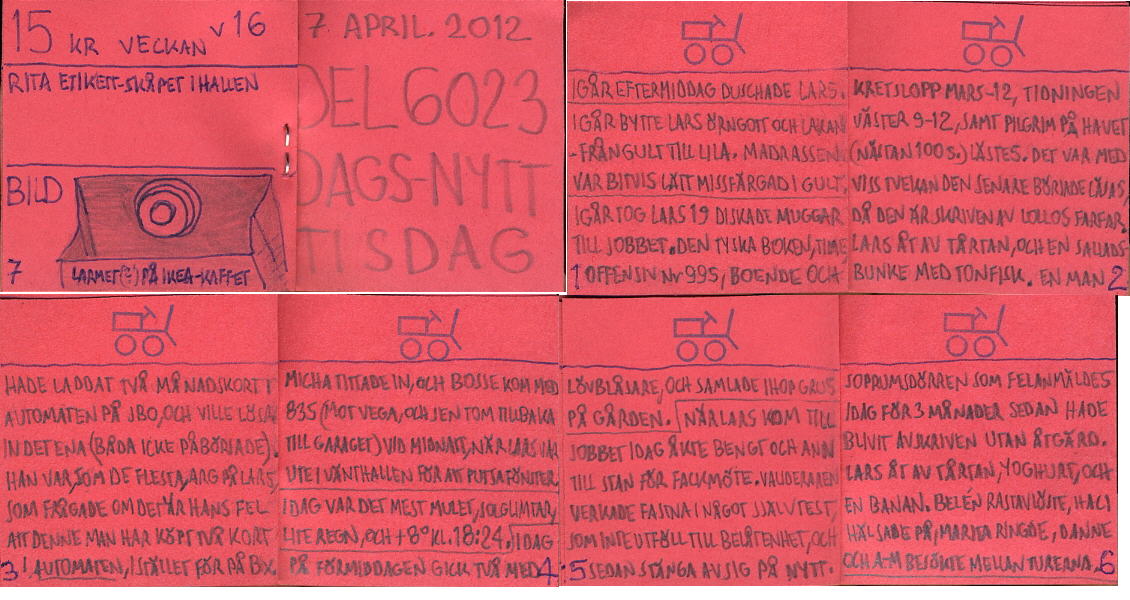 15 KR VECKAN V16
RITA ETIKETT-SKÅPET I HALLEN
BILD
7
LARMET(?) PÅ IKEA-KAFFET
7 APRIL. 2012
DEL 6023
DAGS-NYTT
TISDAG
IGÅR EFTERMIDDAG DUSCHADE LARS.
IGÅR BYTTE LARS ÖRNGOTT OCH LAKAN
-FRÅN GULT TILL LILA. MADRASSEN
VAR BITVIS LÄTT MISSFÄRGAD I GULT.
IGÅR TOG LARS 19 DISKADE MUGGAR
TILL JOBBET. DEN TYSKA BOKEN, TIME
1 OFFENSIV Nr 995, BOENDE OCH
KRETSLOPP MARS-12, TIDNINGEN
VÄSTER 9-12, SAMT PILGRIM PÅ HAVET
(NÄSTAN 100 S.) LÄSTES. DET VAR MED
VISS TVEKAN DEN SENARE BÖRJADE LÄSAS,
DÅ DEN ÄR SKRIVEN AV LOLLOS FARFAR.
LARS ÅT AV TÅRTAN, OCH EN SALLADS-
BUNKE MED TONFISK. EN MAN 2
HADE LADDAT TVÅ MÅNADSKORT I
AUTOMATEN PÅ JBO, OCH VILLE LÖSA
IN DET ENA (BÅDA ICKE PÅBÖRJADE).
HAN VAR, SOM DE FLESTA, ARG PÅ LARS,
SOM FRÅGADE OM DET ÄR HANS FEL
ATT DENNE MAN HAR KÖPT TVÅ KORT
3 I AUTOMATEN, ISTÄLLET FÖR PÅ BX.
MICHA TITTADE IN, OCH BOSSE KOM MED
835 (MOT VEGA, OCH SEN TOM TILLBAKA
TILL GARAGET) VID MIDNATT, NÄR LARS VAR
UTE I VÄNTHALLEN FÖR ATT PUTSA FÖNSTER
IDAG VAR DET MEST MULET, SOLGLIMTAR,
LITE REGN, OCH +8° KL. 18:24. IDAG
PÅ FÖRMIDDAGEN GICK TVÅ MED 4
LÖVBLÅSARE, OCH SAMLADE IHOP GRUS
PÅ GÅRDEN. NÄR LARS KOM TILL
JOBBET IDAG ÅKTE BENGT OCH ANN
TILL STAN FÖR FACKMÖTE. VALIDERAREN
VERKADE FASTNA I NÅGOT SJÄLVTEST,
SOM INTE UTFÖLL TILL BELÅTENHET, OCH
5 SEDAN STÄNGA AV SIG PÅ NYTT.
SOPRUMSDÖRREN SOM FELANMÄLDES
IDAG FÖR 3 MÅNADER SEDAN HADE
BLIVIT AVSKRIVEN UTAN ÅTGÄRD.
LARS ÅT AV TÅRTAN, YOGHURT, OCH
EN BANAN. BELÉN RASTAVLÖSTE, HACI
HÄLSADE PÅ, MARITA RINGDE, DANNE
OCH A-M BESÖKTE MELLAN TURERNA. 6